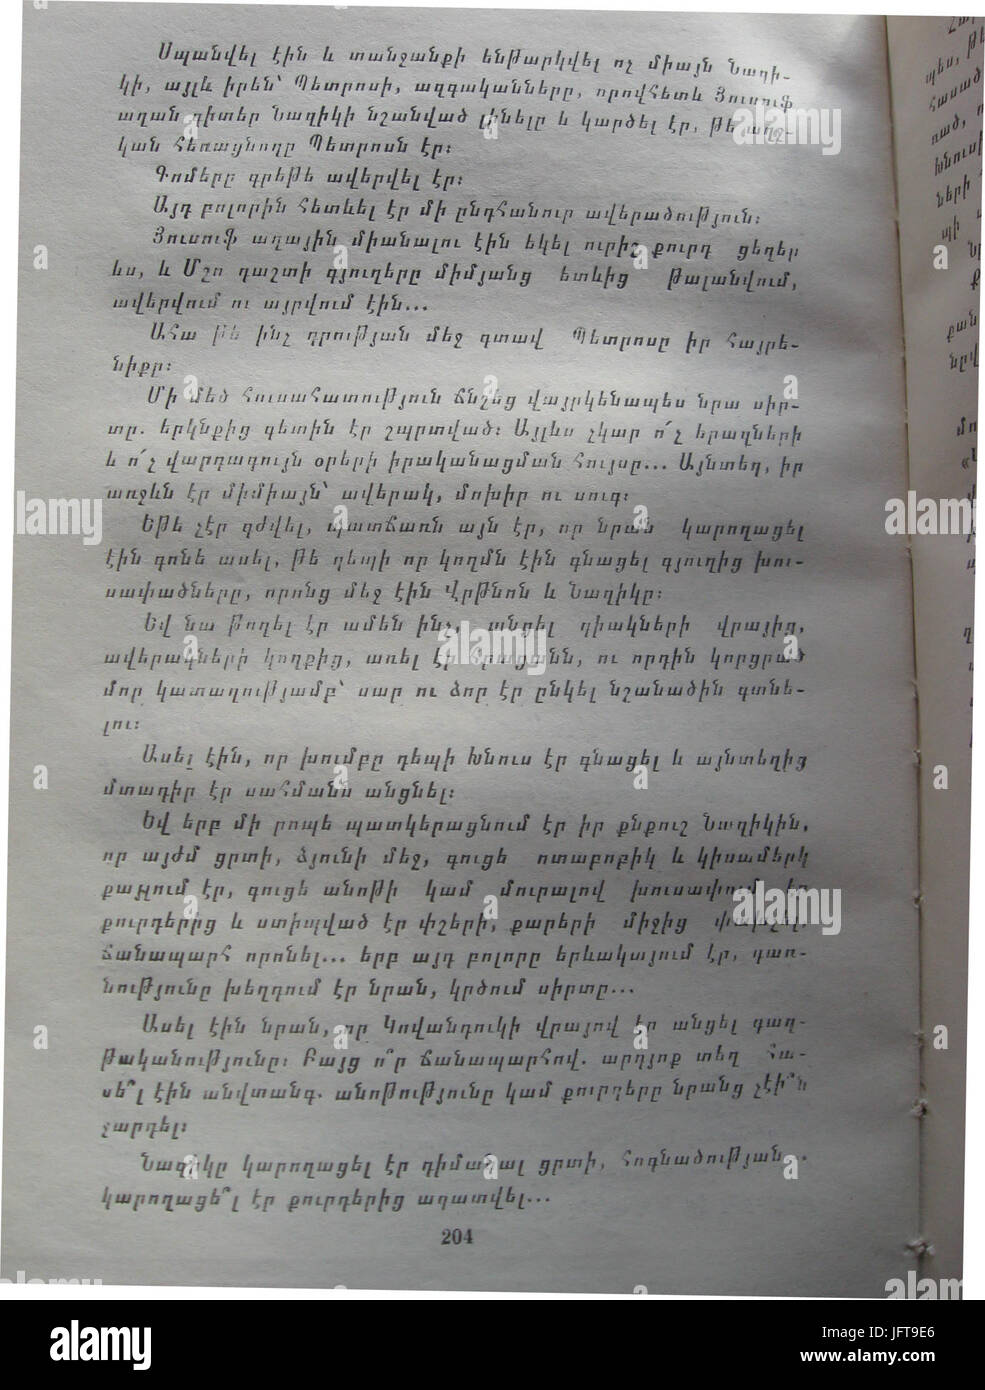 Սպանվել էին և տանջանքի ենթարկվել ոչ միայն Նազի-
կի, այլև իրեն՝ Պետրոսի, ազգականները, որովհետև Յուսուֆ
աղան գիտեր Նազիկի նշանված լինելը և կարծել էր, թե աղջ-
կան հեռացնողը Պետրոսն էր։
Գոմերը գրեթե ավերվել էր։
Այդ բոլորին հետևել էր մի ընդհանուր ավերածություն։
Յուսուֆ աղային միանալու էին եկել ուրիշ քուրդ ցեղեր
ևս, և Մշո դաշտի գյուղերը միմյանց ետևից թալանվում,
ավերվում ու այրվում էին...
Ահա թե ինչ դրության մեջ գտավ Պետրոսը իր հայրե-
նիքը։
Մի մեծ հուսահատություն ճնշեց վայրկենապես նրա սիր-
տը. երկնքից գետին էր շպրտված։ Այլևս չկար ո՛չ երազների
և ո՛չ վարդագույն օրերի իրականացման հույսը... Այնտեղ, իր
առջևն էր միմիայն՝ ավերակ, մոխիր ու սուգ։
Եթե չէր գժվել, պատճառն այն էր, որ նրան կարողացել
էին գոնե ասել, թե դեպի որ կողմն էին գնացել գյուղից խու-
սափածները, որոնց մեջ էին Վրթնոն և Նազիկը։
Եվ նա թողել էր ամեն ինչ, անցել դիակների վրայից,
ավերակների կողքից, առել էր հրացանն, ու որդին կորցրած
մոր կատաղությամբ՝ սար ու ձոր էր ընկել նշանածին գտնե-
լու։
Ասել էին, որ խումբը դեպի Խնուս էր գնացել և այնտեղից
մտադիր էր սահմանն անցնել։
Եվ երբ մի րոպե պատկերացնում էր իր քնքուշ Նազիկին,
որ այժմ ցրտի, ձյունի մեջ, գուցե ոտաբոբիկ և կիսամերկ
քայլում էր, գուցե անոթի կամ մուրալով խուսափում էր
քուրդերից և ստիպված էր փշերի, քարերի միջից փախչել,
ճանապարհ որոնել... երբ այդ բոլորը երևակայում էր, դառ-
նությունը խեղդում էր նրան, կրծում սիրտը...
Ասել էին նրան, որ Կովանդուկի վրայով էր անցել գաղ-
թականությունը։ Բայց ո՞ր ճանապարհով. արդյոք տեղ հա-
սե՞լ էին անվտանգ. անոթությունը կամ քուրդերը նրանց չէի՞ն
չարդել։
Նազիկը կարողացել էր դիմանալ ցրտի, հոգնածության...
կարողացե՞լ էր քուրդերից ազատվել...
204
a
alamy
alamy
Image ID: JFT9E6
www.alamy.com